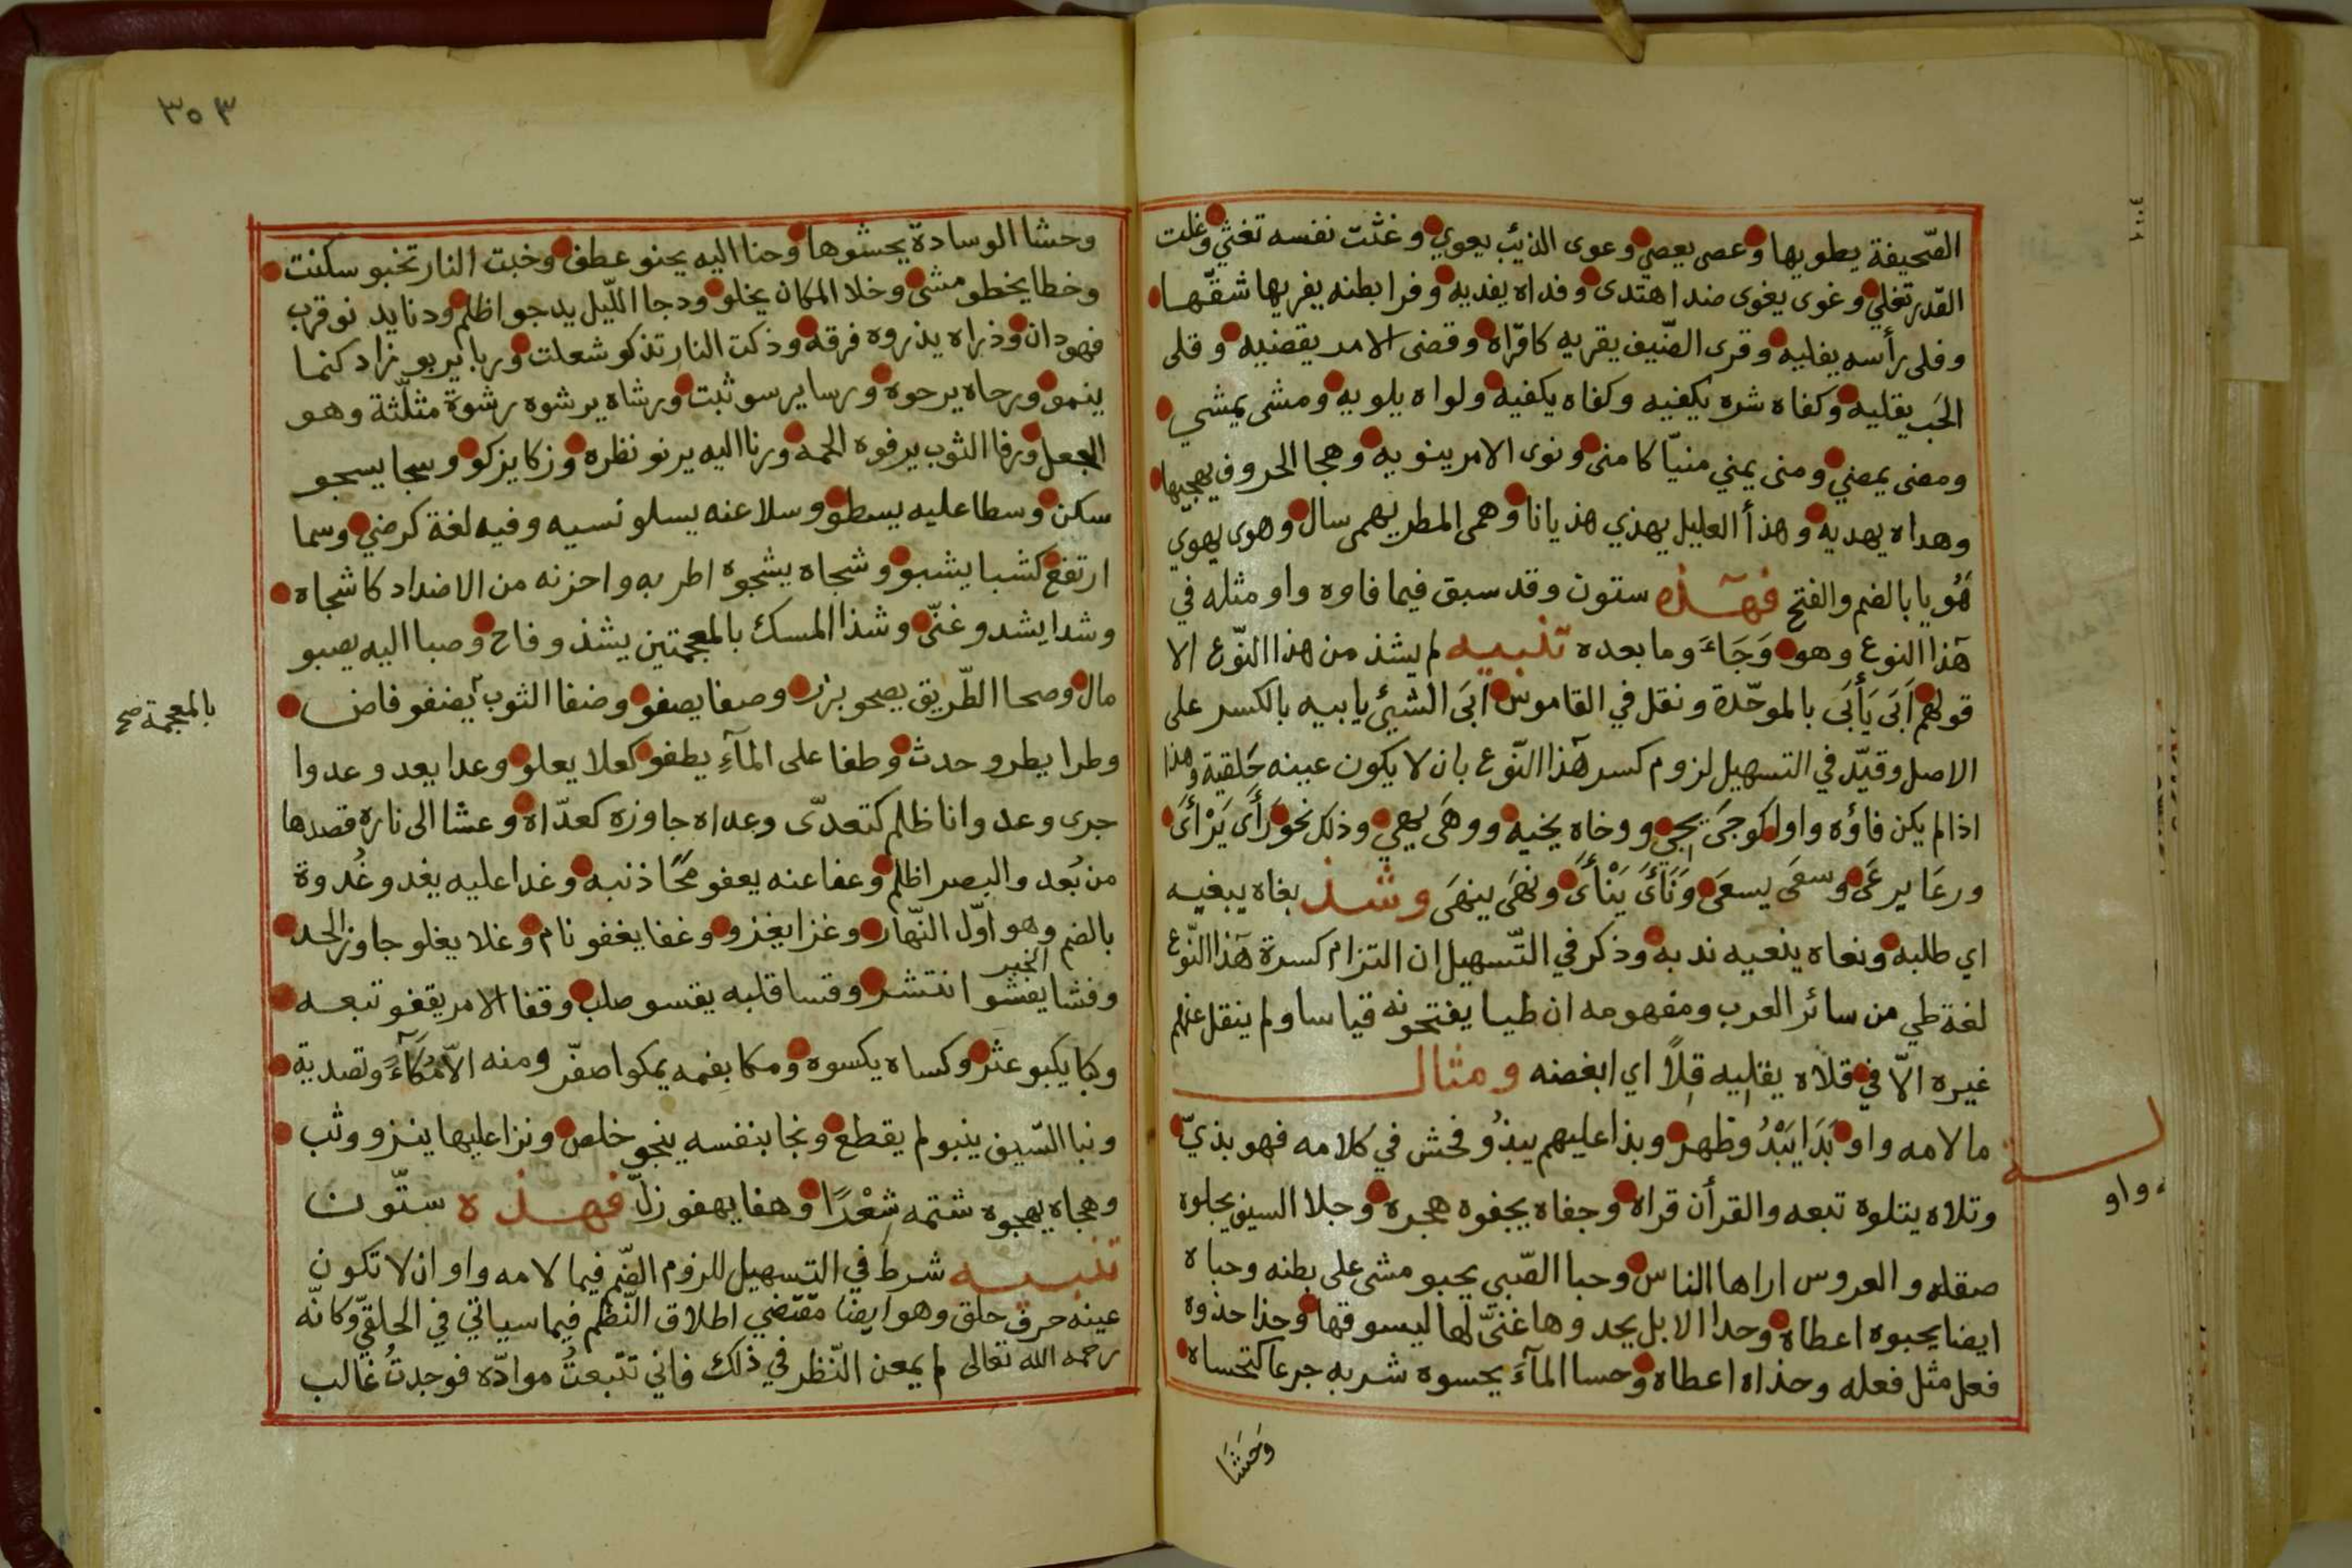 الصّحيفة يطويها وعصى يعصي وعوى الذيئب يعوي وغثت نفسه تغثي وغلت
القدر تغلي وغوى يغوى ضد اهتدى وفداه يفديه وفرا بطنه يفريها شقّها
وفلى رأسه يفليه وقرى الضّيف يقريه كاقراه وقضى الامر يقضيه وقلى
الحَب يقليه وكفاه شره يكفيه وكفاه يكفيه ولواه يلويه ومشى يمشي
ومضى يمضي ومنى يمني منيّا كامنى ونوى الامر ينويه وهجا الحروف يهجيها
وهداه يهديه وهذأ العليل يهذي هذيانا وهمى المطر يهمى سال وهوى يهوي
هَُويا بالضم والفتح فهٓذه ستون وقد سبق فيما فاوه واو مثله في
هٓذا النوع وهو وَجَاءَ وما بعده تنبيه لم يشذ من هذا النّوع الا
قولهم اَبَى يَأبَى بالموحّدة ونقل في القاموس ابَى الشيئ يابيه بالكسر على
الاصل وقيّد في التسهيل لزوم كسر هٓذا النّوع بان لا يكون عينه حَلقية وهذا
اذا لم يكن فاؤه واوا كوجىَ يجي ووخاه يخيه ووهَى يهي وذلك نحو رَأى يَرْأىَ
ورعَا يرعَى وسعَى يسعَى وَنَأىَ يَنْأىَ ونهَى ينهَى وشذ بغاه يبغيه
اي طلبه ونعاه ينعيه ندبه وذكر في التّسهيل ان التزام كسرة هٓذا النّوع
لغة طي من سائر العرب ومفهومه ان طيا يفتحونه قياسا ولم ينقل عنهم
غيره الاّ في قلاه يقليه قِلاً اي ابغضه ومثال
ما لامه واو بَدَا يَبْدُو ظهر وبذا عليهم يبذُو فحش في كلامه فهو بذيّ
وتلاه يتلوه تبعه والقرأن قراه وجفاه يجفوه هجره وجلا السيف يجلوه
صقله والعروس اراها الناس وحبا الصّبي يحبو مشى على بطنه وحباه
ايضا يحبوه اعطاه وحدا الابل يحدوها غنىّ لها ليسوقها وحذا حذوه
فعل مثل فعله وحذاه اعطاه وحسا المآءَ يحسوه شربه جرعا كتحساه
وَحَشَا
واو
٣٠٣
وحشا الوسادة يحشوها وحنا اليه يحنو عطف وخبت النار تخبو سكنت
وخطا يخطو مشى وخلا المكان يخلو ودجا اللّيل يدجو اظلم ودنا يدنو قرب
فهو دان وذراه يذروه فرقه وذكت النار تذكو شعلت وربا يربو زاد كنما
ينمو ورجاه يرجوه ورسا يرسو ثبت ورشاه يرشوه رشوة مثلّثة وهو
الجعل ورفا الثوب يرفوه الحمه ورنا اليه يرنو نظره وزكا يزكو وسجا يسجو
سكن وسطا عليه يسطو وسلا عنه يسلو نسيه وفيه لغة كرضي وسما
ارتفع كشبا يشبو وشجاه يشجوه اطربه واحزنه من الاضداد كاشجاه
وشدا يشدو غنّى وشذا المسك بالمعجمتين يشذو فاح وصبا اليه يصبو
مال وصحا الطّريق يصحو برز وصفا يصفو وضفا الثوب يضفو فاض
بالمعجمة صح
وطرا يطرو حدث وطفا على المآءِ يطفو كعلا يعلو وعدا يعدو عدوا
جرى وعدوانا ظلم كتعدّى وعداه جاوزه كعدّاه وعشا الى ناره قصدها
من بُعد والبصر اظلم وعفا عنه يعفو محًا ذنبه وغدا عليه يغدو غُدوة
بالضم وهو اوّل النّهار وغزا يغزو وغفا يغفو نام وغلا يغلو جاوز الحد
وفشا يفشو الخبر انتشر وقسا قلبه يقسو صلب وقفا الامر يقفو تبعه
وكبا يكبو عثر وكساه يكسوه ومكا بفمه يمكوا صفّر ومنه الاّ مُكآءً وتصدية
ونبا السّيف ينبو لم يقطع ونجا بنفسه ينجو خلص ونزا عليها ينزو وثب
وهجاه يهجوه شتمه شِعْرًا وهفا يهفو زلّ فهذه ستّون
تنبيه شرط في التسهيل للزوم الضّم فيما لامه واو ان لا تكون
عينه حرف حلق وهو ايضا مقتضي اطلاق النّظم فيما سياتي في الحلقيّ وكانّه
رحمه الله تعالى لم يمعن النّظر في ذلك فاني تتبعتُ موادّه فوجدتُ غالب